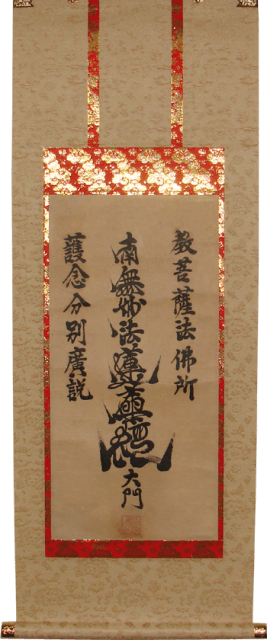 教菩薩法佛所
南無妙法蓮華經
大門
護念分別廣説